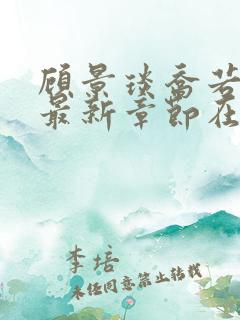 顾景琰乔若
最新章節在
李培
未经同意禁止转载